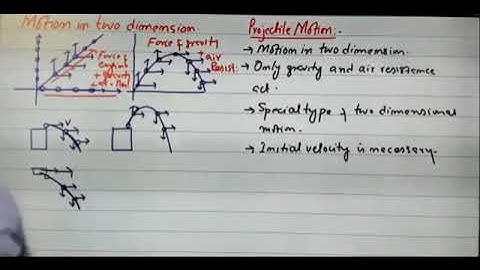 Motion in two dimension.
Force of
+ gravity
Force of gravity
+ air
Resist.
V
Projectile Motion:-
→ Motion in two dimension.
→ Only gravity and air resistence
act.
→ Special type of two dimensional
motion.
→ Initial velocity is necessary.